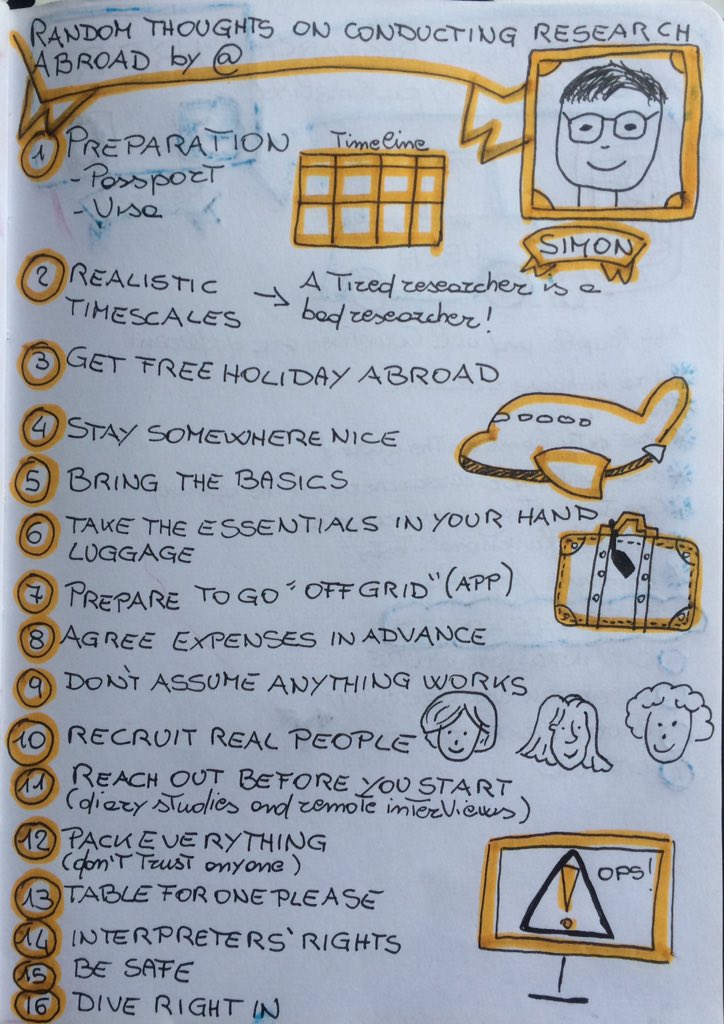 RANDOM THOUGHTS ON CONDUCTING RESEARCH
ABROAD by @
SIMON
1 PREPARATION
- Passport
- Visa
Timeline
2 REALISTIC
TIMESCALES → A Tired researcher is a
bad researcher!
3 GET FREE HOLIDAY ABROAD
4 STAY SOMEWHERE NICE
5 BRING THE BASICS
6 TAKE THE ESSENTIALS IN YOUR HAND
LUGGAGE
7 PREPARE TO GO "OFF GRID" (APP)
8 AGREE EXPENSES IN ADVANCE
9 DON'T ASSUME ANYTHING WORKS
10 RECRUIT REAL PEOPLE
11 REACH OUT BEFORE YOU START
(diary studies and remote interviews)
12 PACK EVERYTHING
(don't Trust anyone)
13 TABLE FOR ONE PLEASE
14 INTERPRETERS' RIGHTS
15 BE SAFE
16 DIVE RIGHT IN
OPS!